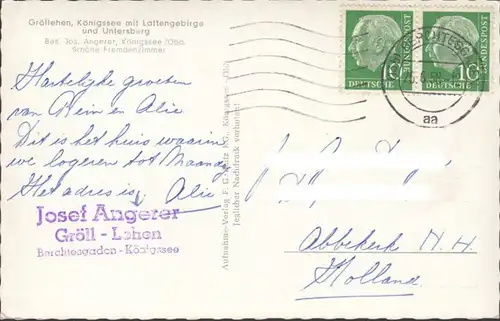 Gröllehen, Königssee mit Lattengebirge
und Untersberg
Bes. Jos. Angerer, Königssee/Obb.
Schöne Fremdenzimmer
Hartelijke groeten
van Rein en Alie
Dit is het huis waarin
we logeren tot Maandag
Het adres is Alie
Josef Angerer
Gröll - Lehen
Berchtesgaden - Königssee
Jeglicher Nachdruck verboten!
DEUTSCHE
BUNDESPOST
10
DEUTSCHE
BUNDESPOST
10
aa
Abbekerk N.H.
Holland